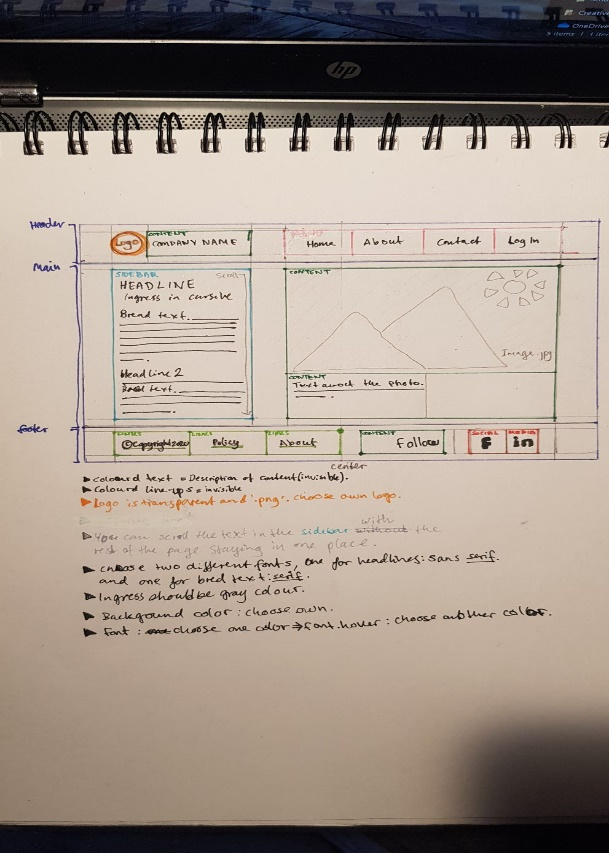 Creativ
OneDriv
hp
Header
Logo
CONTENT
COMPANY NAME
Home
About
Contact
Log In
Main
SIDEBAR
Scroll
HEADLINE
ingress in cursive
Bread text.
Headline 2
Bread text.
CONTENT
Image.jpg
CONTENT
Text about the photo.
footer
LINKS
©Copyright2020
LINKS
Policy
LINKS
About
CONTENT
Follow
SOCIAL MEDIA
f in
center
▶ colourd text = Description of content (invisible).
▶ Colourd line-ups = invisible
▶ Logo is transparent and ".png". choose own logo.
▶ You can scroll the text in the sidebar with the
rest of the page staying in one place.
▶ choose two different fonts, one for headlines: sans serif.
and one for bred text: serif.
▶ Ingress should be gray colour.
▶ Background color: choose own.
▶ Font: choose one color → font.hover: choose another color.